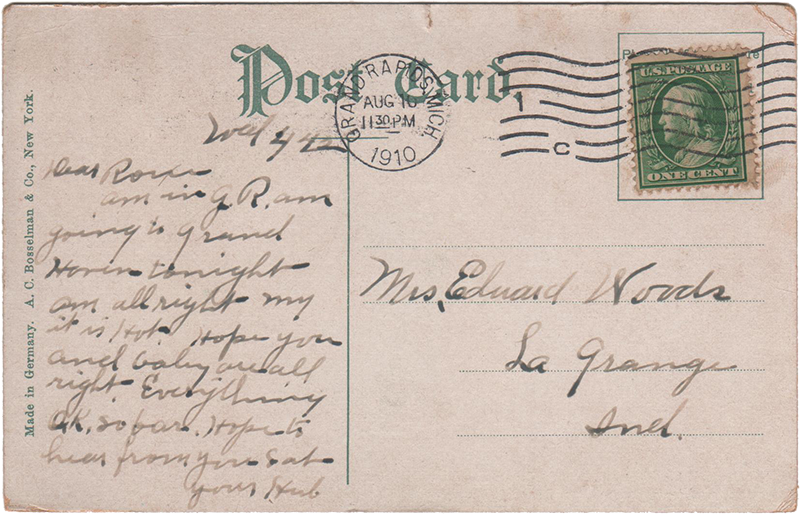 Post Card
GRAND RAPIDS, MICH.
AUG 10
11 30 PM
1910
1
C
U.S. POSTAGE
ONE CENT
Made in Germany. A. C. Bosselman & Co., New York.
Wed
Dear
am in G R. am
going to Grand
Haven tonight
am all right my
it is Hot. Hope you
and baby are all
right. Everything
OK. so far. Hope to
hear from you Sat
your Hub
Mrs. Eduard Woods
La Grange
Ind.